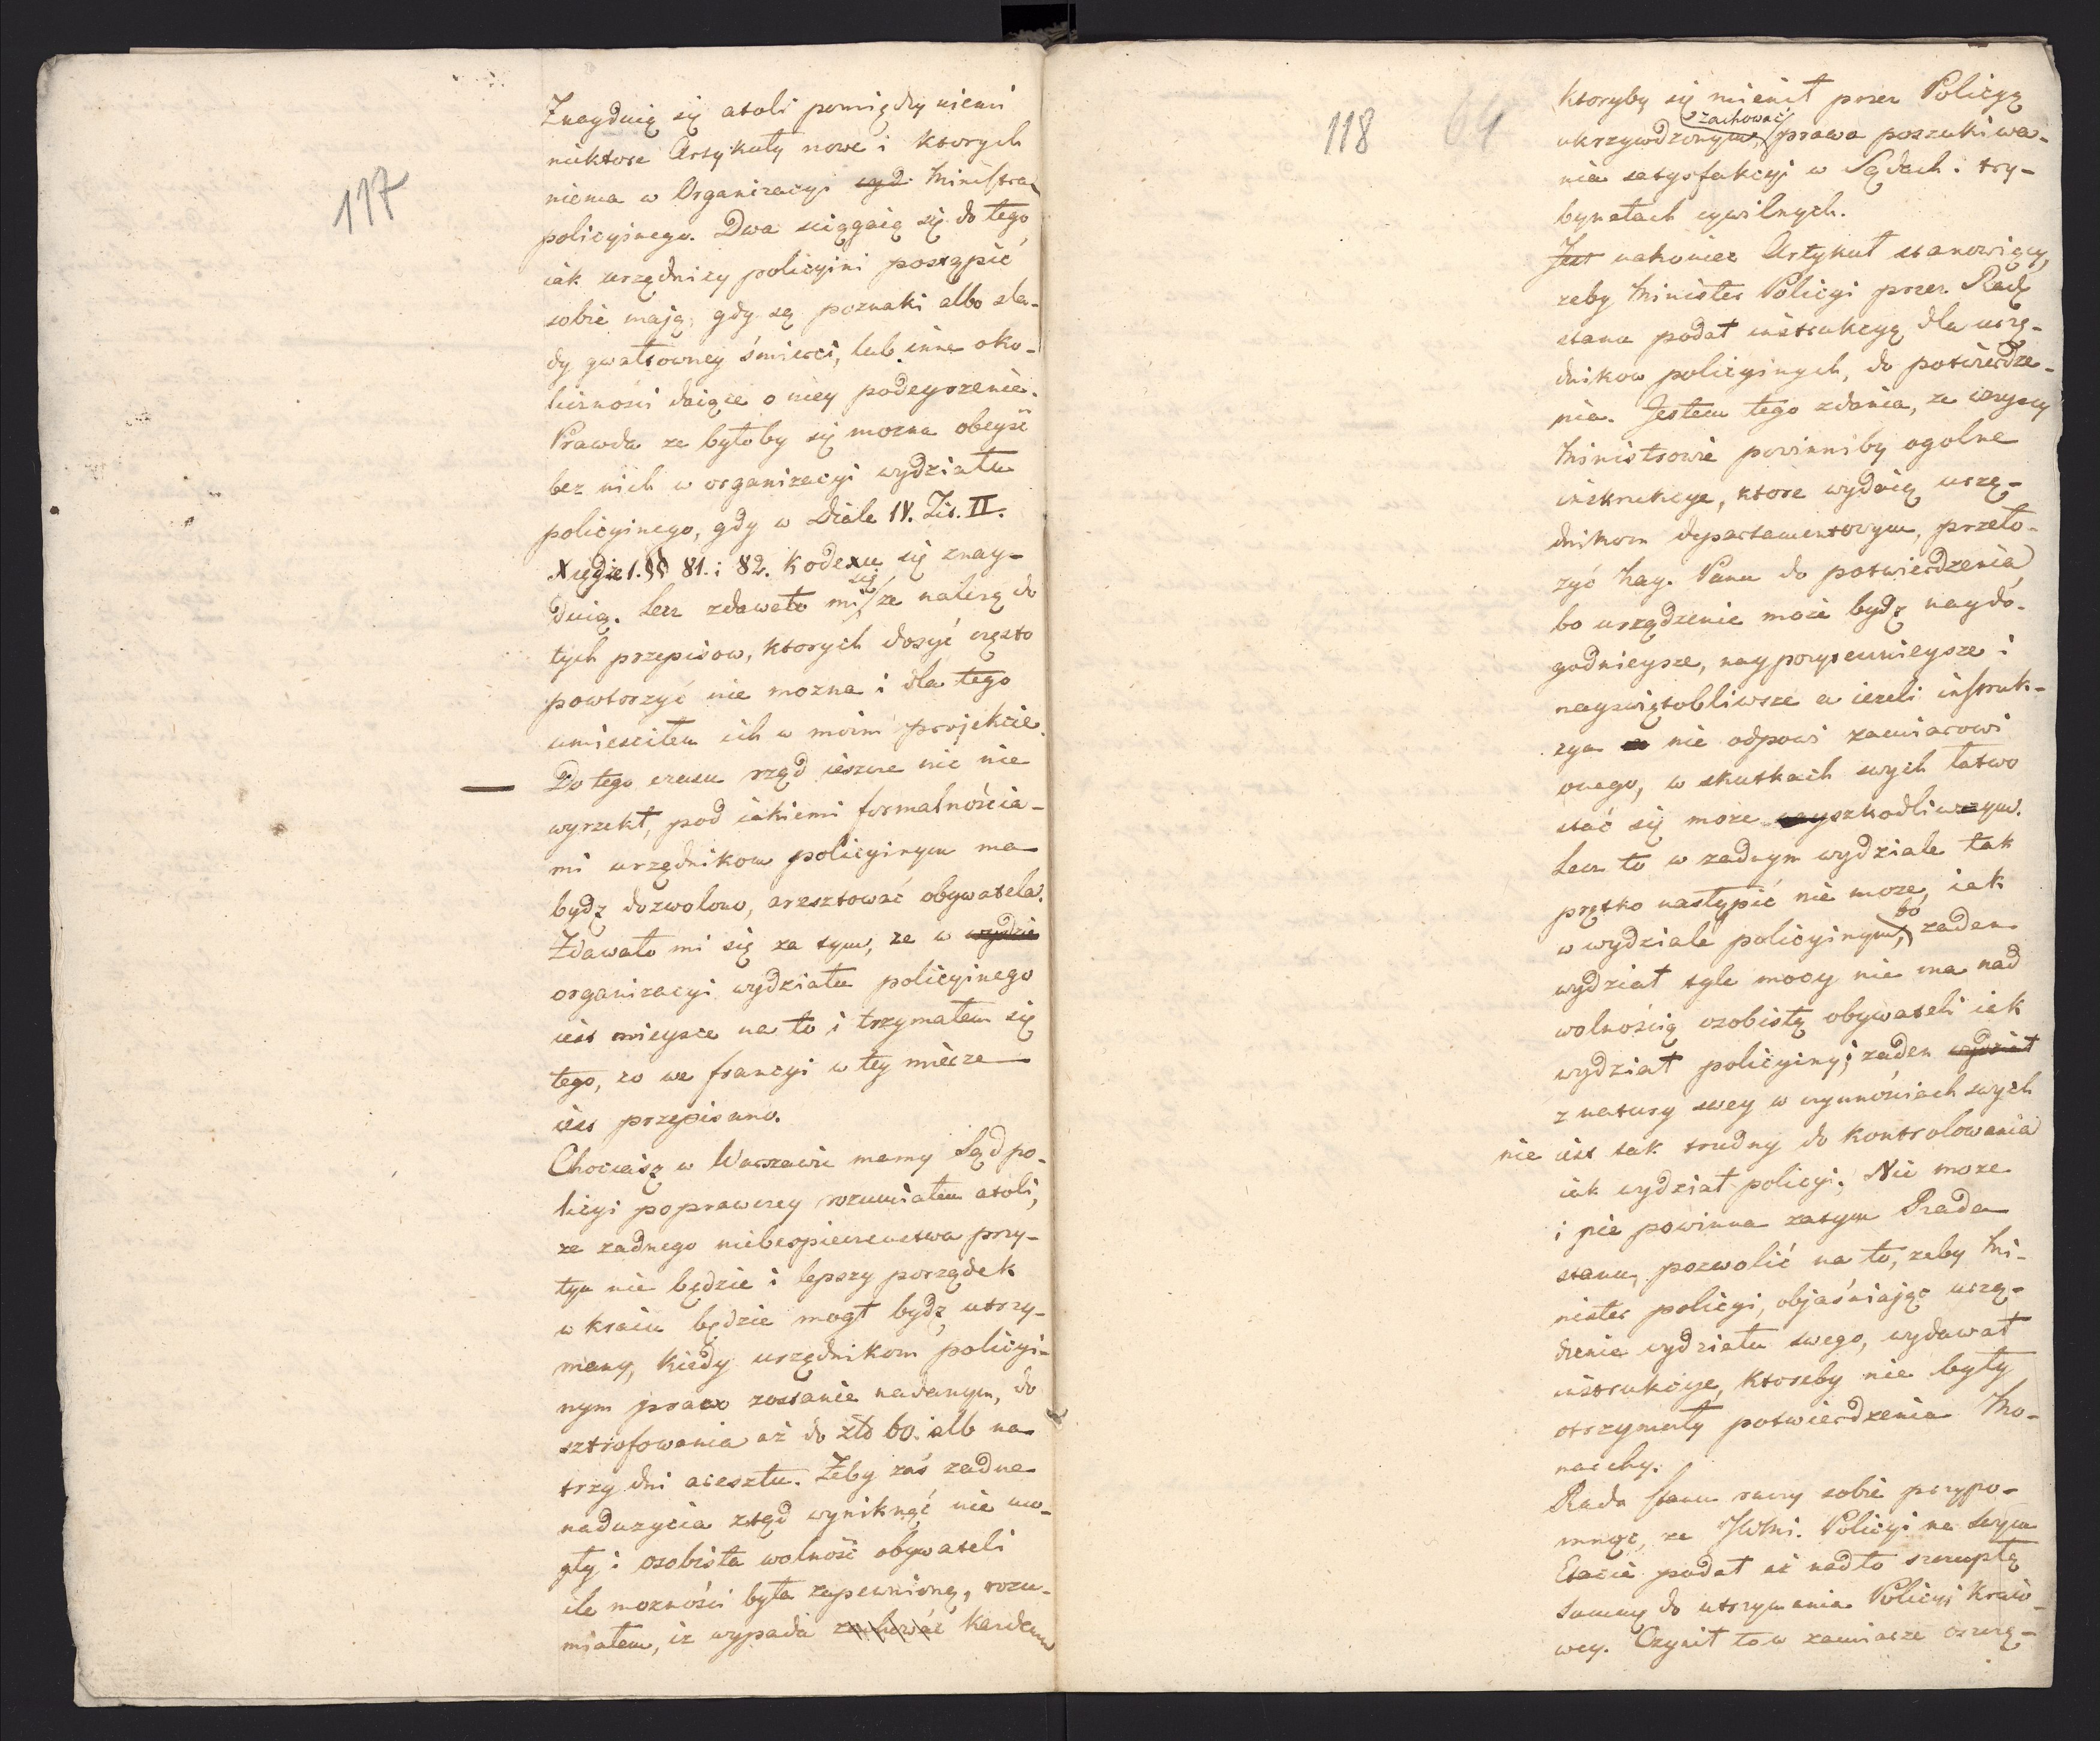 117
Znayduią się atoli pomiędzy niemi
niektore Artykuły nowe i ktorych
niema w Organizacyi wyd. Ministra
policyinego. Dwa sciągaią się do tego,
iak urzędnicy policyini postąpić
sobie mają, gdy są poznaki albo sla-
dy gwałtowney śmierci, lub inne oko-
liczności daiące o niey podeyrzenie.
Prawda ze byłoby się mozna obeyść
bez nich w organizacyi wydziału
policyinego, gdy w Diale IV. Tit. II.
Xiędze 1. §§ 81. i 82. Kodexu się znay-
duią. Lecz zdawało mi się ze nalezą do
tych przepisow, ktorych dosyć często
powtorzyć nie mozna i dla tego
umiescilem ich w moim projekcie.
— Do tego czasu rząd ieszcze nic nie
wyrzekł, pod iakiemi formalnościa-
mi urzędnikom policyinym ma
bydz dozwolono, aresztować obywatela.
Zdawało mi się za tym, ze w wydzie
organizacyi wydziału policyinego
iest mieysce na to i trzymałem się
tego, co we francyi w tey mierze
iest przepisano.
Chociasz w Warszawie mamy Sąd po-
licyi poprawczey rozumiałem atoli,
ze zadnego niebespieczenstwa przy-
tym nie będzie i lepszy porządek
w kraiu będzie mogł bydz utrzy-
many, kiedy urzędnikom policyi-
nym prawo zostanie nadanym, do
sztrofowania aż do złt 60. alb na
trzy dni aresztu. Żeby zaś zadne
naduzycia ztąd wyniknąć nie mo-
gły i osobista wolność obywateli
ile mozności była zapewnioną, rozu-
miałem, iz wypada zachować kazdemu
118 64
ktoryby się mienił przez Policyą
ukrzywdzonym, zachować prawa poszukiwa-
nia satysfakcyi w Sądach i try-
bynałach cywilnych.
Jest nakoniec Artykuł stanowiący,
zeby Minister Policyi przez Radę
stanu podał instrukcyą dla urzę-
dnikow policyinych, do potwierdze-
nia. Jestem tego zdania, ze wszyscy
Ministrowie powinniby ogolne
instrukcye, ktore wydaią urzę-
dnikom departamentowym, przeło-
zyć Nay. Panu do potwierdzenia,
bo urządzenie może bydz naydo-
godnieysze, nayporzemnieysze i
nayswiętobliwsze a iezeli instruk-
cya nie odpowi zamiarowi
onego, w skutkach swych łatwo
stać się moze szkodliwszym.
Lecz to w zadnym wydziale tak
prętko nastąpić nie moze, iak
w wydziale policyinym, bo zaden
wydział tyle mocy nie ma nad
wolnością osobistą obywateli iak
wydział policyiny; zaden wydział
z natury swey w czynnościach swych
nie iest tak trudny do kontrolowania
iak wydział policyi. Nie moze
i nie powinna zatym Rada
stanu, pozwolić na to, zeby Mi-
nister policyi, objaśniając urzą-
dzenie wydziału swego, wydawał
instrukcye, ktoreby nie były
otrzymały potwierdzenia Mo-
narchy.
Rada stanu raczy sobie przypo-
mnąc, ze JWMi. Policyi na swym
Etacie podał aż nadto szczupłą
Summę do utrzymania Policyi Kraio-
wey. Czynił to w zamiarze oszczę-